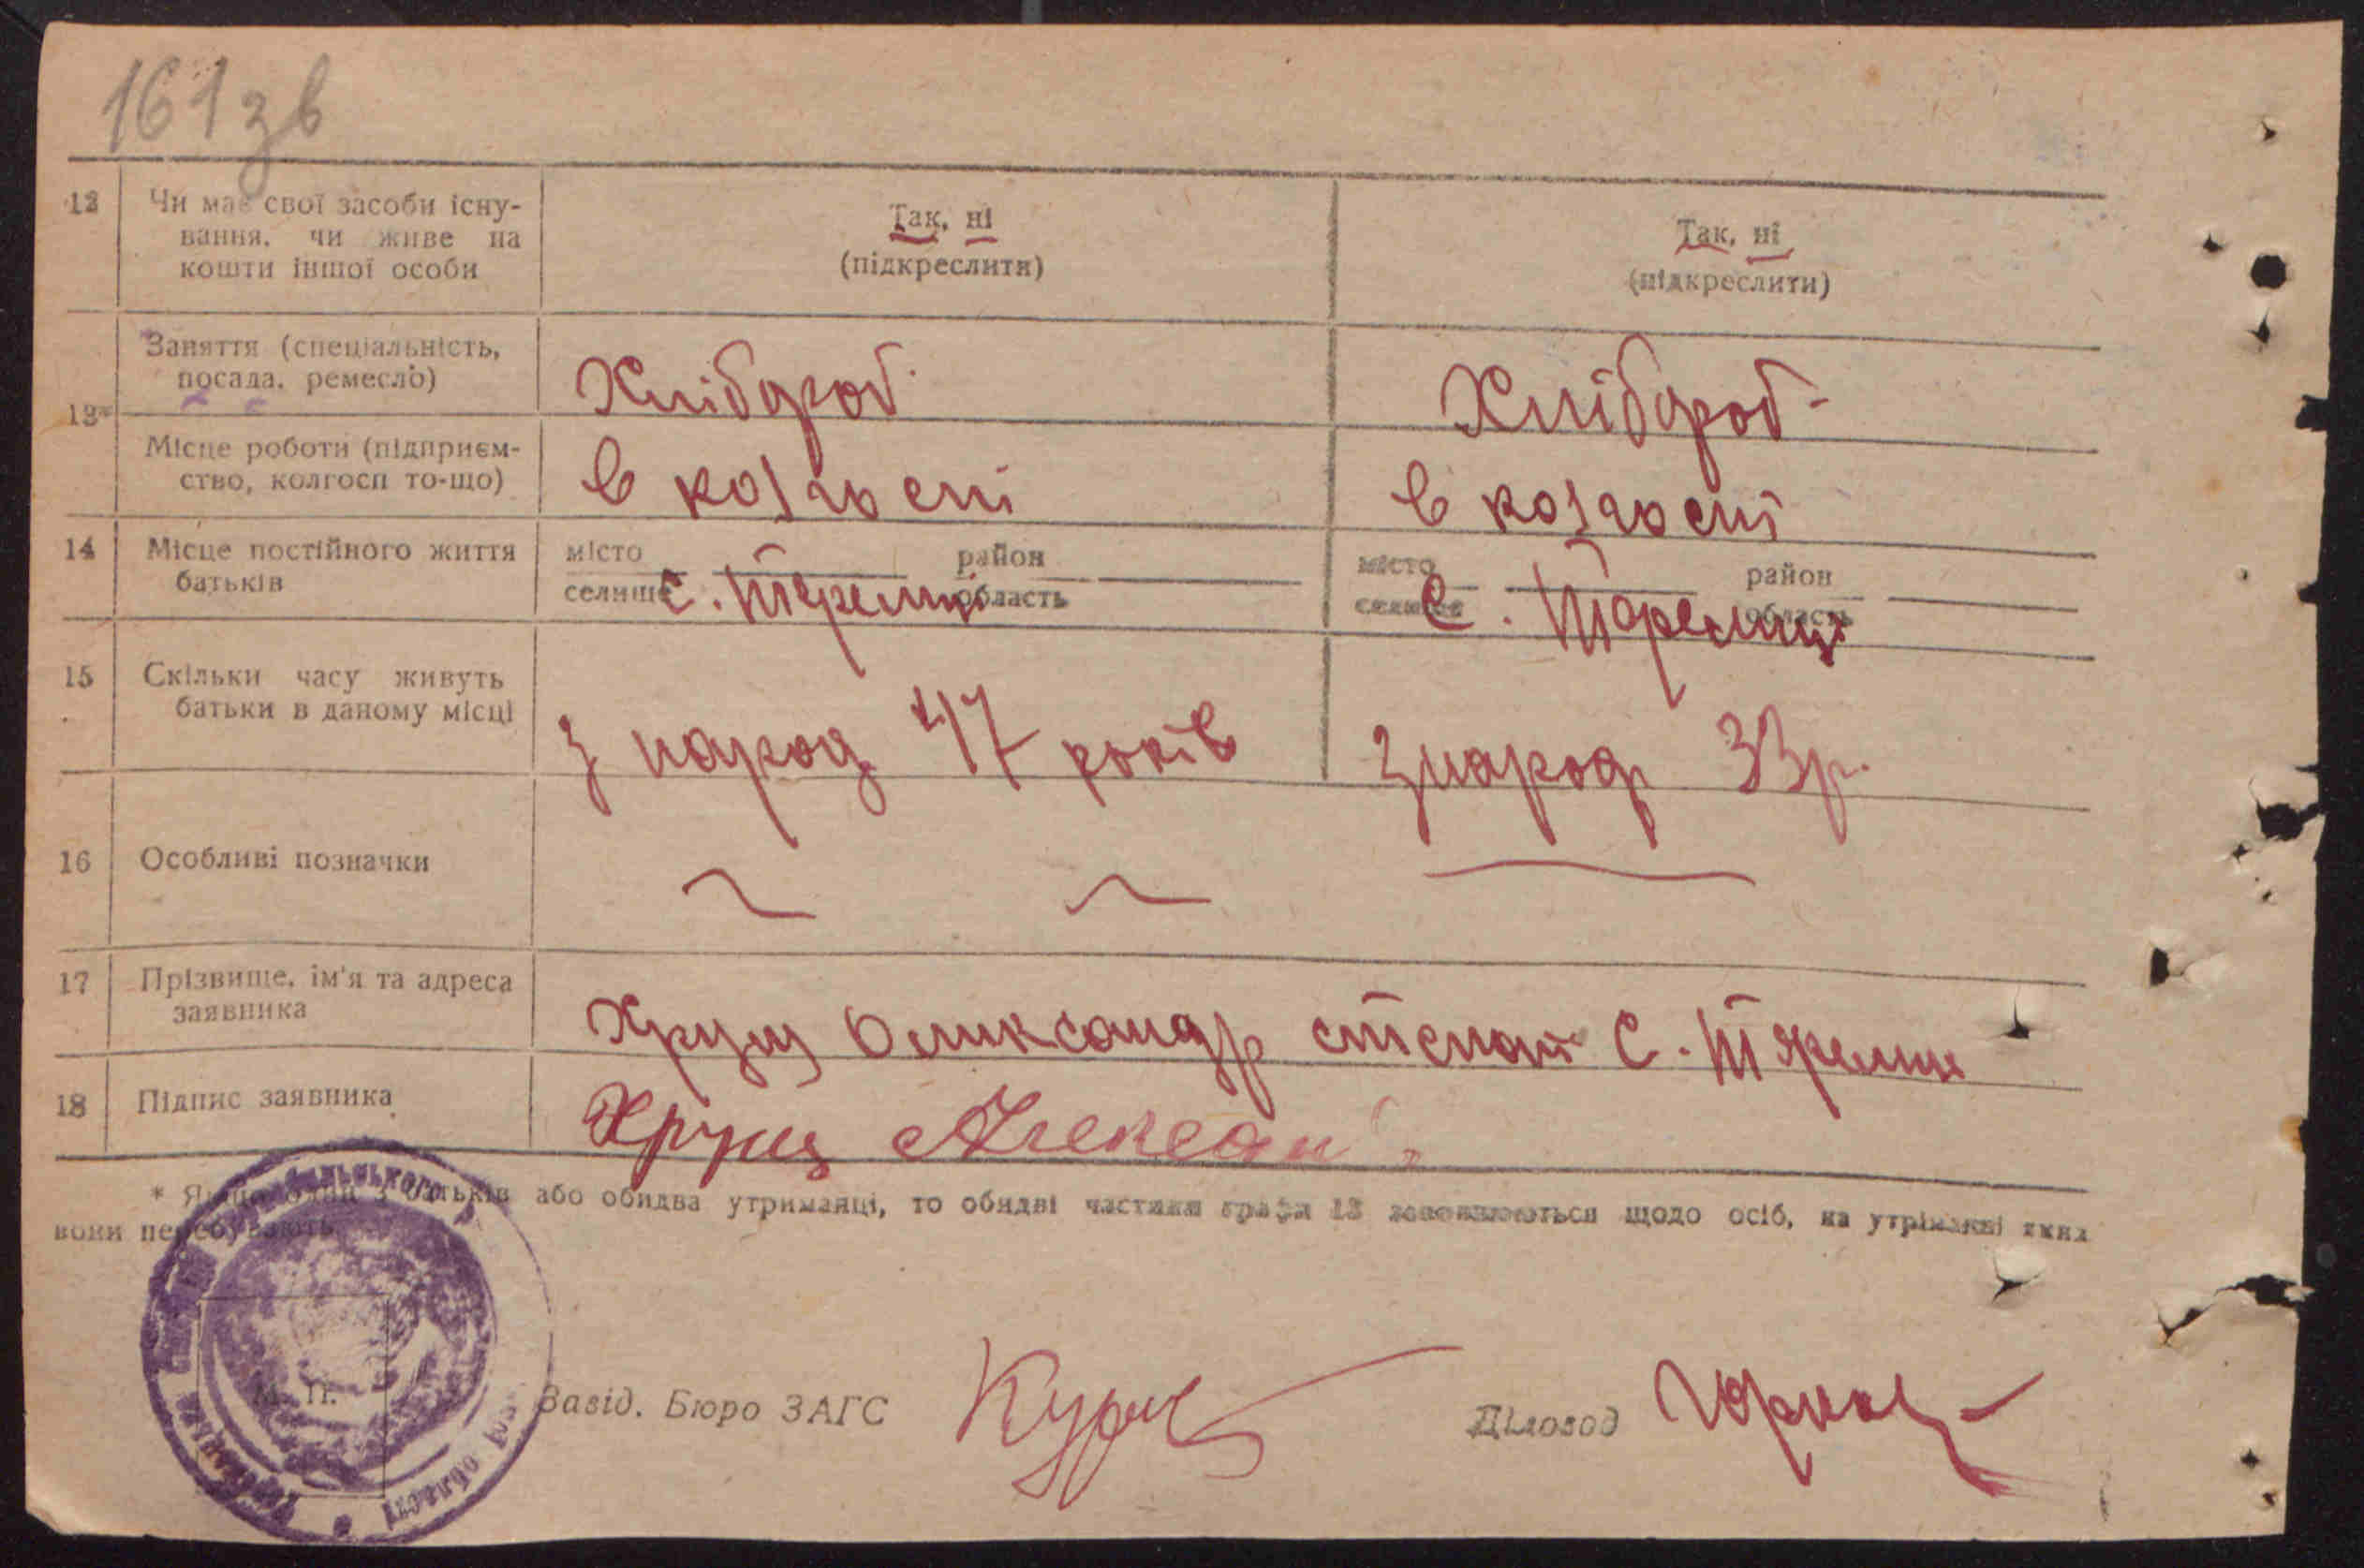 161 зв
12 Чи має свої засоби існу-
вання, чи живе на
кошти іншої особи
Так, ні
(підкреслити)
Так, ні
(підкреслити)
13*
Заняття (спеціальність,
посада, ремесло)
Хлібороб
Хлібороб
Місце роботи (підприєм-
ство, колгосп то-що)
в
в
14 Місце постійного життя
батьків
місто
селище
район
область
с.
місто
селище
район
область
с.
15 Скільки часу живуть
батьки в даному місці
з народ 47 років
з народ 33 р.
16 Особливі позначки
17 Прізвище, ім'я та адреса
заявника
Хрущ Олександр с.
18 Підпис заявника
Хрущ Алексан
* Якщо один з батьків або обидва утриманці, то обидві частини графи 13 заповнюються щодо осіб, на утриманні яких
вони перебувають.
М. П.
Завід. Бюро ЗАГС
Діловод